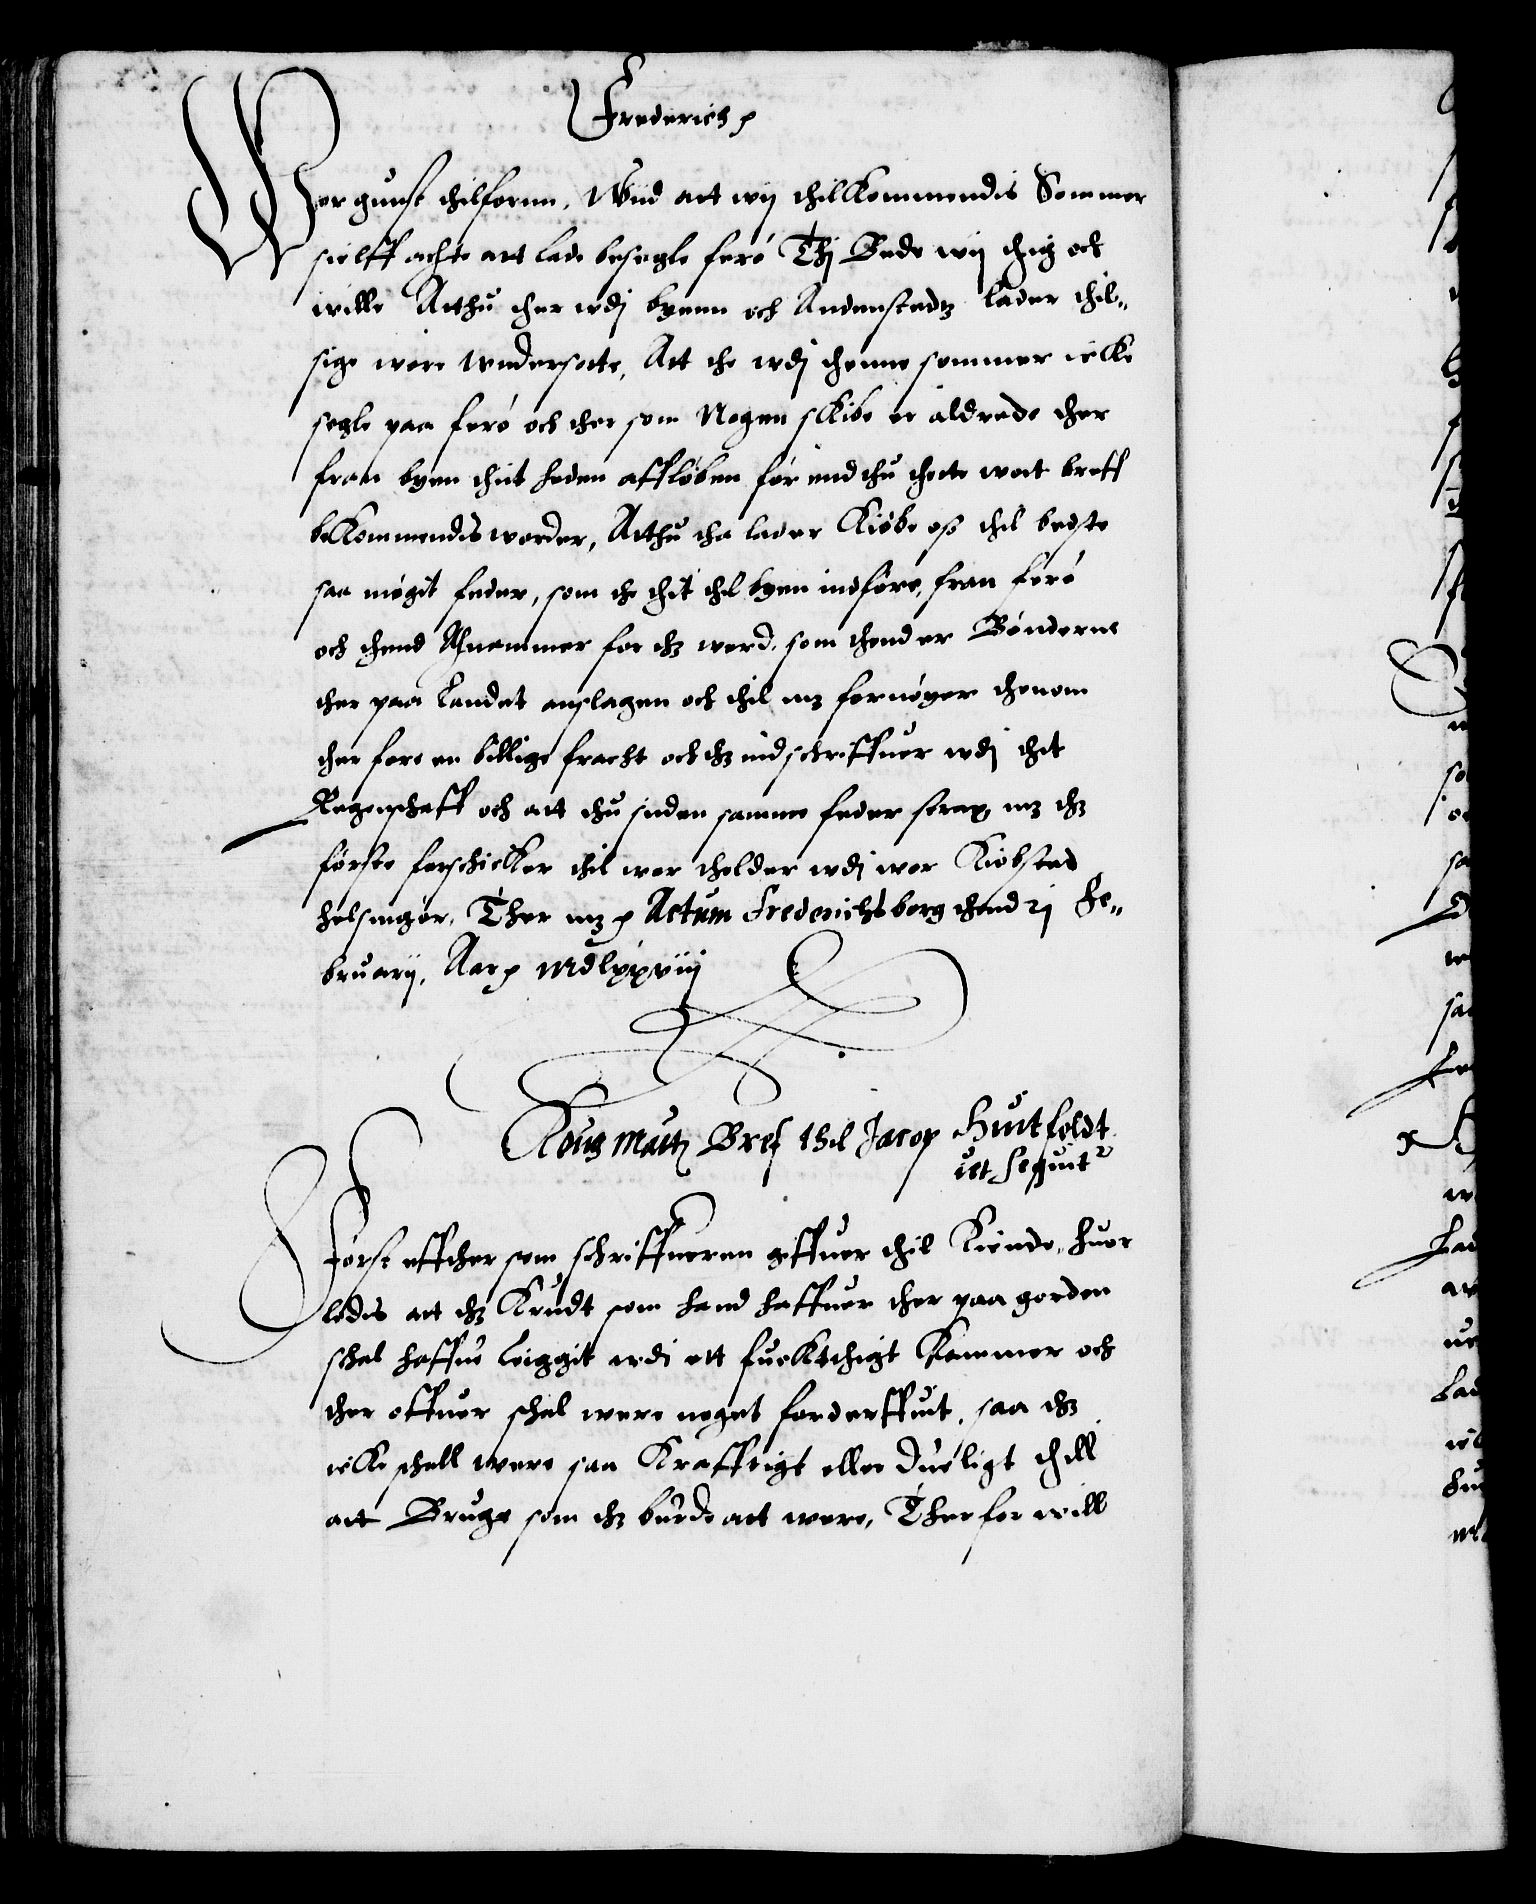 Frederich p
Wor gunst thilfornn, Wiid att wij thilkommendis Sommer
sielff achte att lade besegle ferø Thj Bede wij thig och
wille Atthu ther wdj byenn och Andenstedz lader thil„
sige wore wndersotte, Att the wdj thenne sommer icke
segle paa ferø och ther som Nogen skibe er alrede ther
fraa byen thit heden affløben før end thu thette wort breff
bekommendis worder, Atthu tha lader Kiøbe oss thil bedste
saa møgit feder, som the thit thil byen indføre, fran ferø
och thend Annammer for thz werd, som thend er Bønderne
ther paa Landet anslagen och thil mz fornøger thenom
ther fore en billige fracht och thz indschriffuer wdj thit
Regenschaff och att thu siden samme feder strax mz thz
første forschicker thil wor tholder wdj wor Kiøbsted
helsingør, Ther mz p Actum Frederichsborg thend 21 Fe„
bruarij, Aar p Mdlxxviij
Kong Maitz Breff thil Jacop Huitfeldt
ut sequit2
Først effther som schriffueren giffuer thil Kiende, huor
ledis att thz Krudt som hand haffuer ther paa gorden
schal haffue leiggit wdi ett fucktthigt Kammer och
ther offuer schal were noget forderffuit, saa thz
icke schall were saa Krafftigt eller dueligt thill
att Bruge som thz burde att were, Therfor will